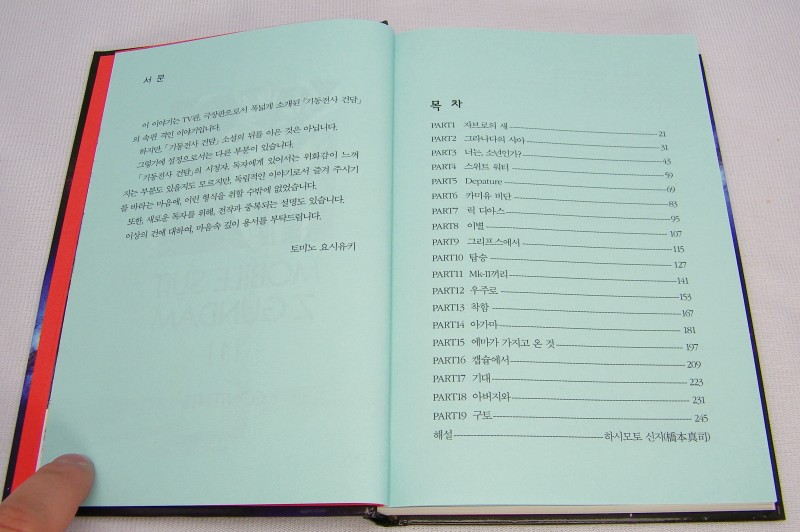 서 문
이 이야기는 TV판, 극장판으로서 폭넓게 소개된 「기동전사 건담」
의 속편 격인 이야기입니다.
하지만, 「기동전사 건담」 소설의 뒤를 이은 것은 아닙니다.
그렇기에 설정으로서는 다른 부분이 있습니다.
「기동전사 건담」의 시청자, 독자에게 있어서는 위화감이 느껴
지는 부분도 있을지도 모르지만, 독립적인 이야기로서 즐겨 주시기
를 바라는 마음에, 이런 형식을 취할 수밖에 없었습니다.
또한, 새로운 독자를 위해, 전작과 중복되는 설명도 있습니다.
이상의 건에 대하여, 마음속 깊이 용서를 부탁드립니다.
토미노 요시유키
목 차
PART1 자브로의 새 21
PART2 그라나다의 시아 31
PART3 너는, 소년인가? 43
PART4 스위트 워터 59
PART5 Depature 69
PART6 카미유 비단 83
PART7 릭 디아스 95
PART8 이별 107
PART9 그리프스에서 115
PART10 탑승 127
PART11 Mk-II끼리 141
PART12 우주로 153
PART13 착함 167
PART14 아가마 181
PART15 에마가 가지고 온 것 197
PART16 캡슐에서 209
PART17 기대 223
PART18 아버지와 231
PART19 구토 245
해설 하시모토 신지(橋本真司)